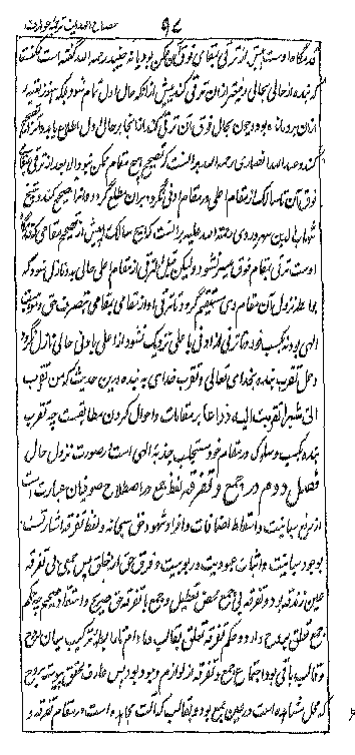 ۹۷
قدمگاه اوست پیش از ترقی بمقامی فوق آن ممکن بود یا نه جنید رحمه الله گفته است ممکنست
که بنده از حالی بحالی رفیعتر از آن ترقی کند پیش از آنکه حال اول تمام شود بلکه هنوز بقیه
از آن بر وی مانده بود و چون بحال فوق آن ترقی کند از آنجا بر حال اول اطلاع یابد و آنرا تصحیح
کند و عبد الله انصاری رحمه الله بر آنست که تصحیح هیچ مقام ممکن نبود الا بعد از ترقی بمقامی
فوق آن تا سالک از مقام اعلی در مقام ادنی نگرد و بر آن مطلع گردد و آنرا صحیح کند و شیخ
شهاب الدین سهروردی رحمة الله علیه بر آنست که هیچ سالک را پیش از تصحیح مقامی که قدمگاه
اوست ترقی بمقام فوق میسر نشود ولیکن قبل الترقی از مقام اعلی حالی بدو نازل شود که
بواسطه نزول آن مقام وی مستقیم گردد تا ترقی او از مقامی بمقامی بتصرف حق و موهبت
الهی بود نه بکسب خود و تا ترقی از ادنی باعلی نزدیک نشود از اعلی بادنی حالی نازل نگردد
و حمل تقرب بنده بخدای تعالی و تقرب خدای به بنده درین حدیث که من تقرب
الی شبرا تقربت الیه ذراعا بر مقامات و احوال کردن مطابقست چه تقرب
بنده بکسب و سلوک در مقام خود مستجلب جذبه الهی است در صورت نزول حال
فصل دوم در جمع و تفرقه لفظ جمع در اصطلاح صوفیان عبارت است
از رفع مباینت و اسقاط اضافات و افراد شهود حق سبحانه و لفظ تفرقه اشارتست
بوجود مباینت و اثبات عبودیت و ربوبیت و فرق حق از خلق پس جمع بی تفرقه
عین زندقه بود و تفرقه بی جمع محض تعطیل و جمع با تفرقه حق صریح و اعتقاد صحیح چه حکم
جمع تعلق بروح دارد و حکم تفرقه تعلق بقالب مادام تا رابطه ترکیب میان روح
و قالب باقی بود اجتماع جمع و تفرقه از لوازم وجود بود پس عارف محقق پیوسته بروح
که محل مشاهده است در عین جمع بود و بقالب که آلت مجاهده است در مقام تفرقه و